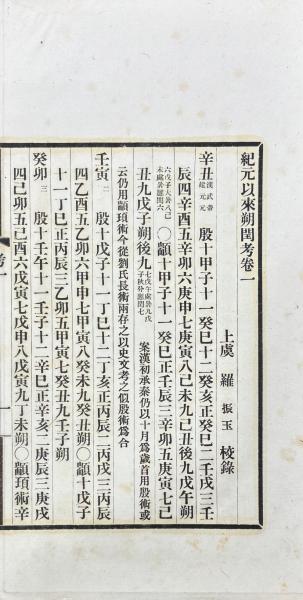 紀元以來朔閏考卷一
上虞 羅 振玉 校錄
辛丑 漢武帝建元元 殷十甲子十一癸巳十二癸亥正癸巳二壬戌三壬
辰四辛酉五辛卯六庚申七庚寅八己未九己丑後九戊午朔
○顓十甲子十一癸巳正壬辰三辛卯五庚寅七己
丑九戊子朔後九 案漢初承秦仍以十月為歲首用殷術或
云仍用顓頊術今從劉氏長術兩存之以史文考之似殷術為合
壬寅 二 殷十戊子十一丁巳十二丁亥正丙辰二丙戌三丙辰
四乙酉五乙卯六甲申七甲寅八癸未九癸丑朔○顓十戊子
十一丁巳正丙辰三乙卯五甲寅七癸丑九壬子朔
癸卯 三 殷十壬午十一壬子十二辛巳正辛亥二庚辰三庚戌
四己卯五己酉六戊寅七戊申八戊寅九丁未朔○顓頊術辛
考一